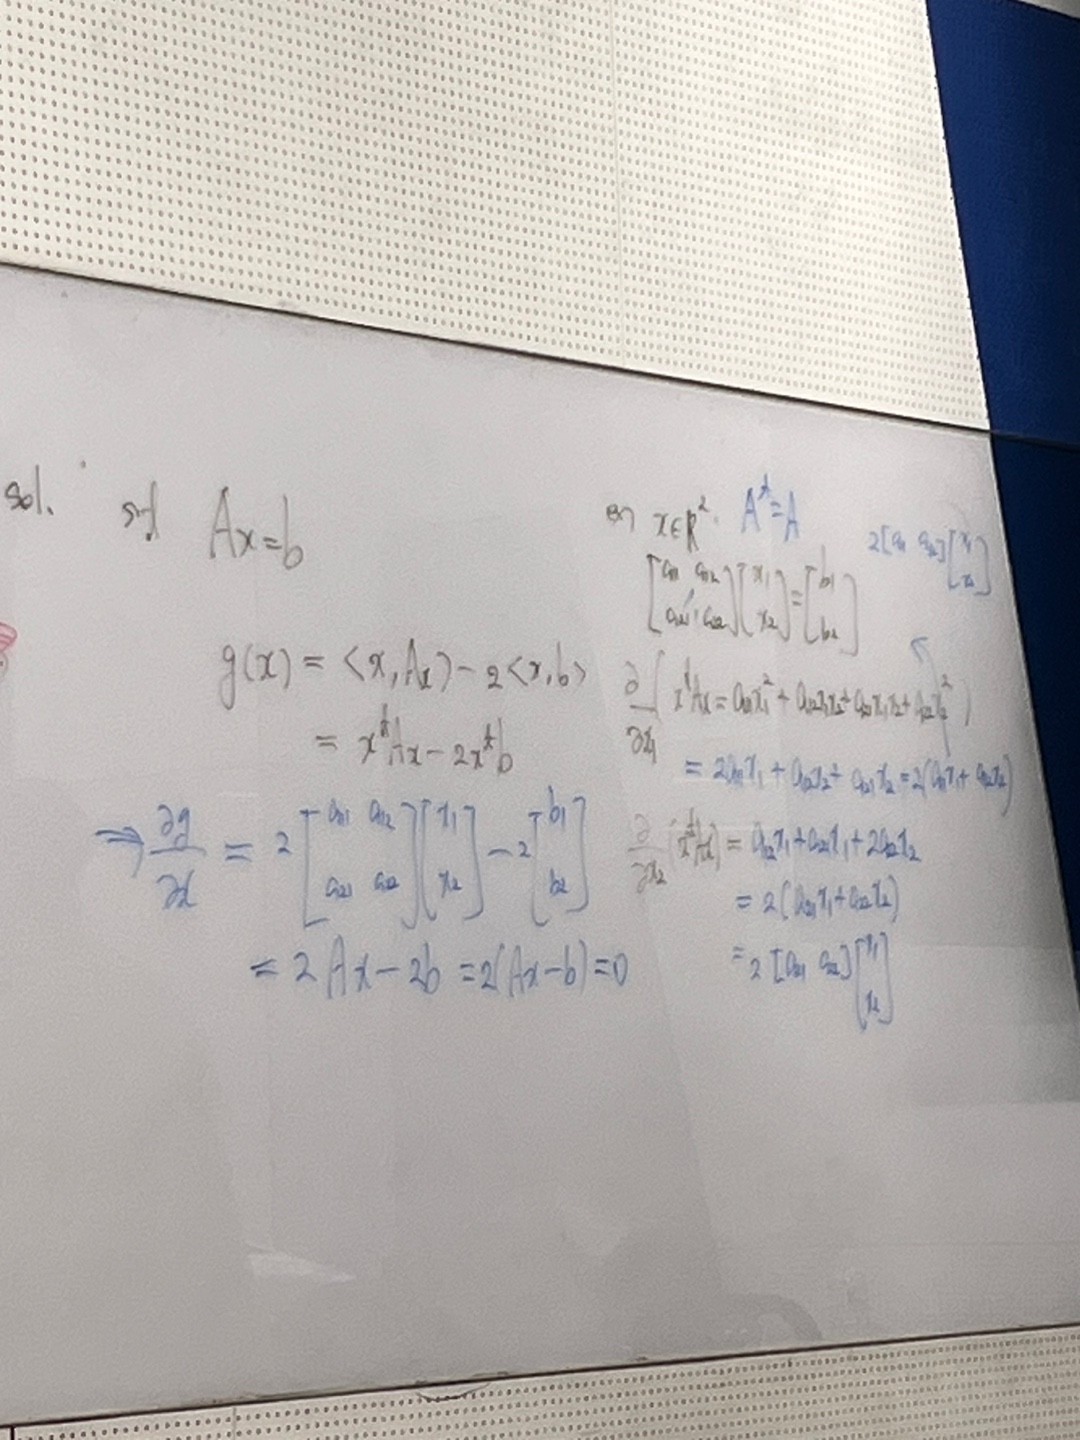 sol. Ax=b
g(x) = <x,Ax> - 2<x,b>
= xᵗAx - 2xᵗb
⇒ ∂g/∂x = 2 [a₁₁ a₁₂; a₂₁ a₂₂] [x₁; x₂] - 2 [b₁; b₂]
= 2Ax - 2b = 2(Ax-b) = 0
x∈R². Aᵗ=A
2[a₁₁ a₁₂] [x₁; x₂]
[a₁₁ a₁₂; a₂₁ a₂₂] [x₁; x₂] = [b₁; b₂]
∂/∂x₁ (xᵗAx = a₁₁x₁² + a₁₂x₁x₂ + a₂₁x₁x₂ + a₂₂x₂²)
= 2a₁₁x₁ + a₁₂x₂ + a₂₁x₂ = 2(a₁₁x₁ + a₁₂x₂)
∂/∂x₂ (xᵗAx) = a₁₂x₁ + a₂₁x₁ + 2a₂₂x₂
= 2(a₂₁x₁ + a₂₂x₂)
= 2 [a₂₁ a₂₂] [x₁; x₂]